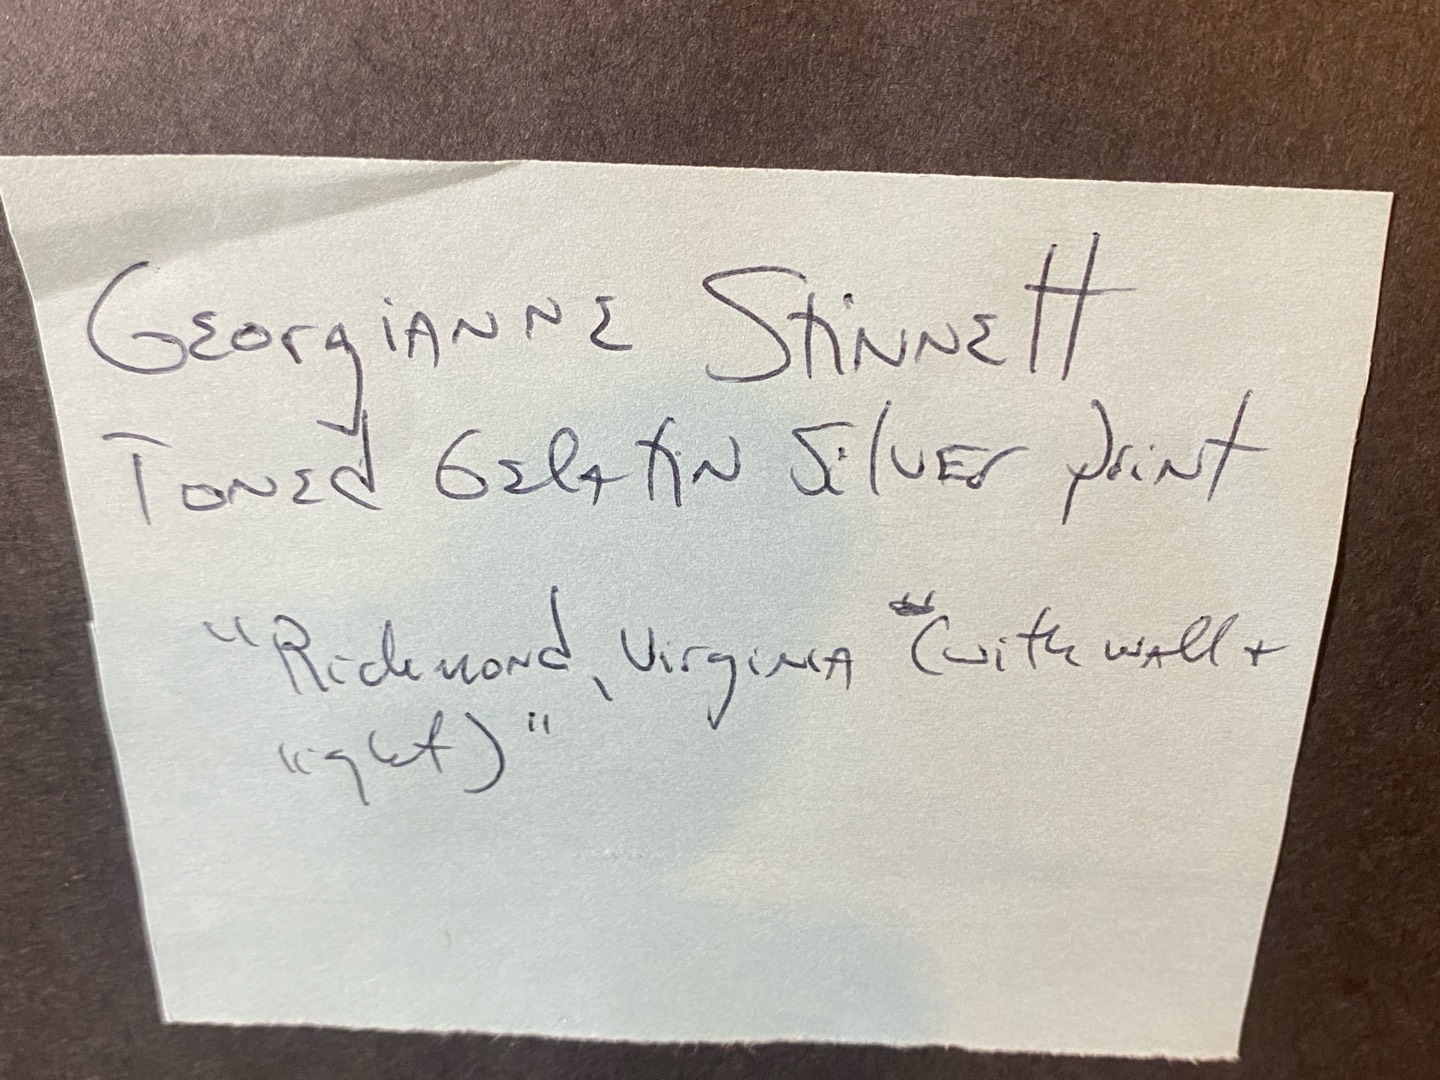 Georgianne Stinnett
Toned Gelatin Silver print
"Richmond, Virginia (with wall +
right)"